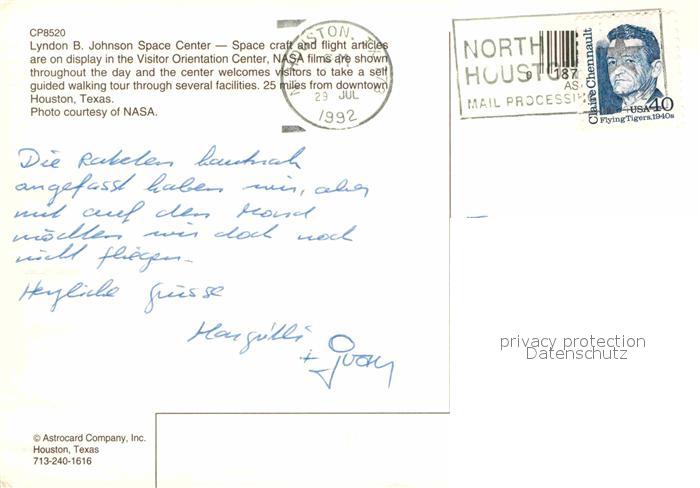 CP8520
Lyndon B. Johnson Space Center — Space craft and flight articles
are on display in the Visitor Orientation Center, NASA films are shown
throughout the day and the center welcomes visitors to take a self
guided walking tour through several facilities. 25 miles from downtown
Houston, Texas.
Photo courtesy of NASA.
HOUSTON, TX
PM
29 JUL
1992
NORTH
HOUSTON
MAIL PROCESSIN
9 187
AS
Claire Chennault
USA 40
Flying Tigers, 1940s
Die Raketen hautnah
angefasst haben wir, aber
mit auf den Mond
möchten wir doch noch
nicht fliegen.
Herzliche Grüsse
Margritli
+ Ivan
privacy protection
Datenschutz
© Astrocard Company, Inc.
Houston, Texas
713-240-1616